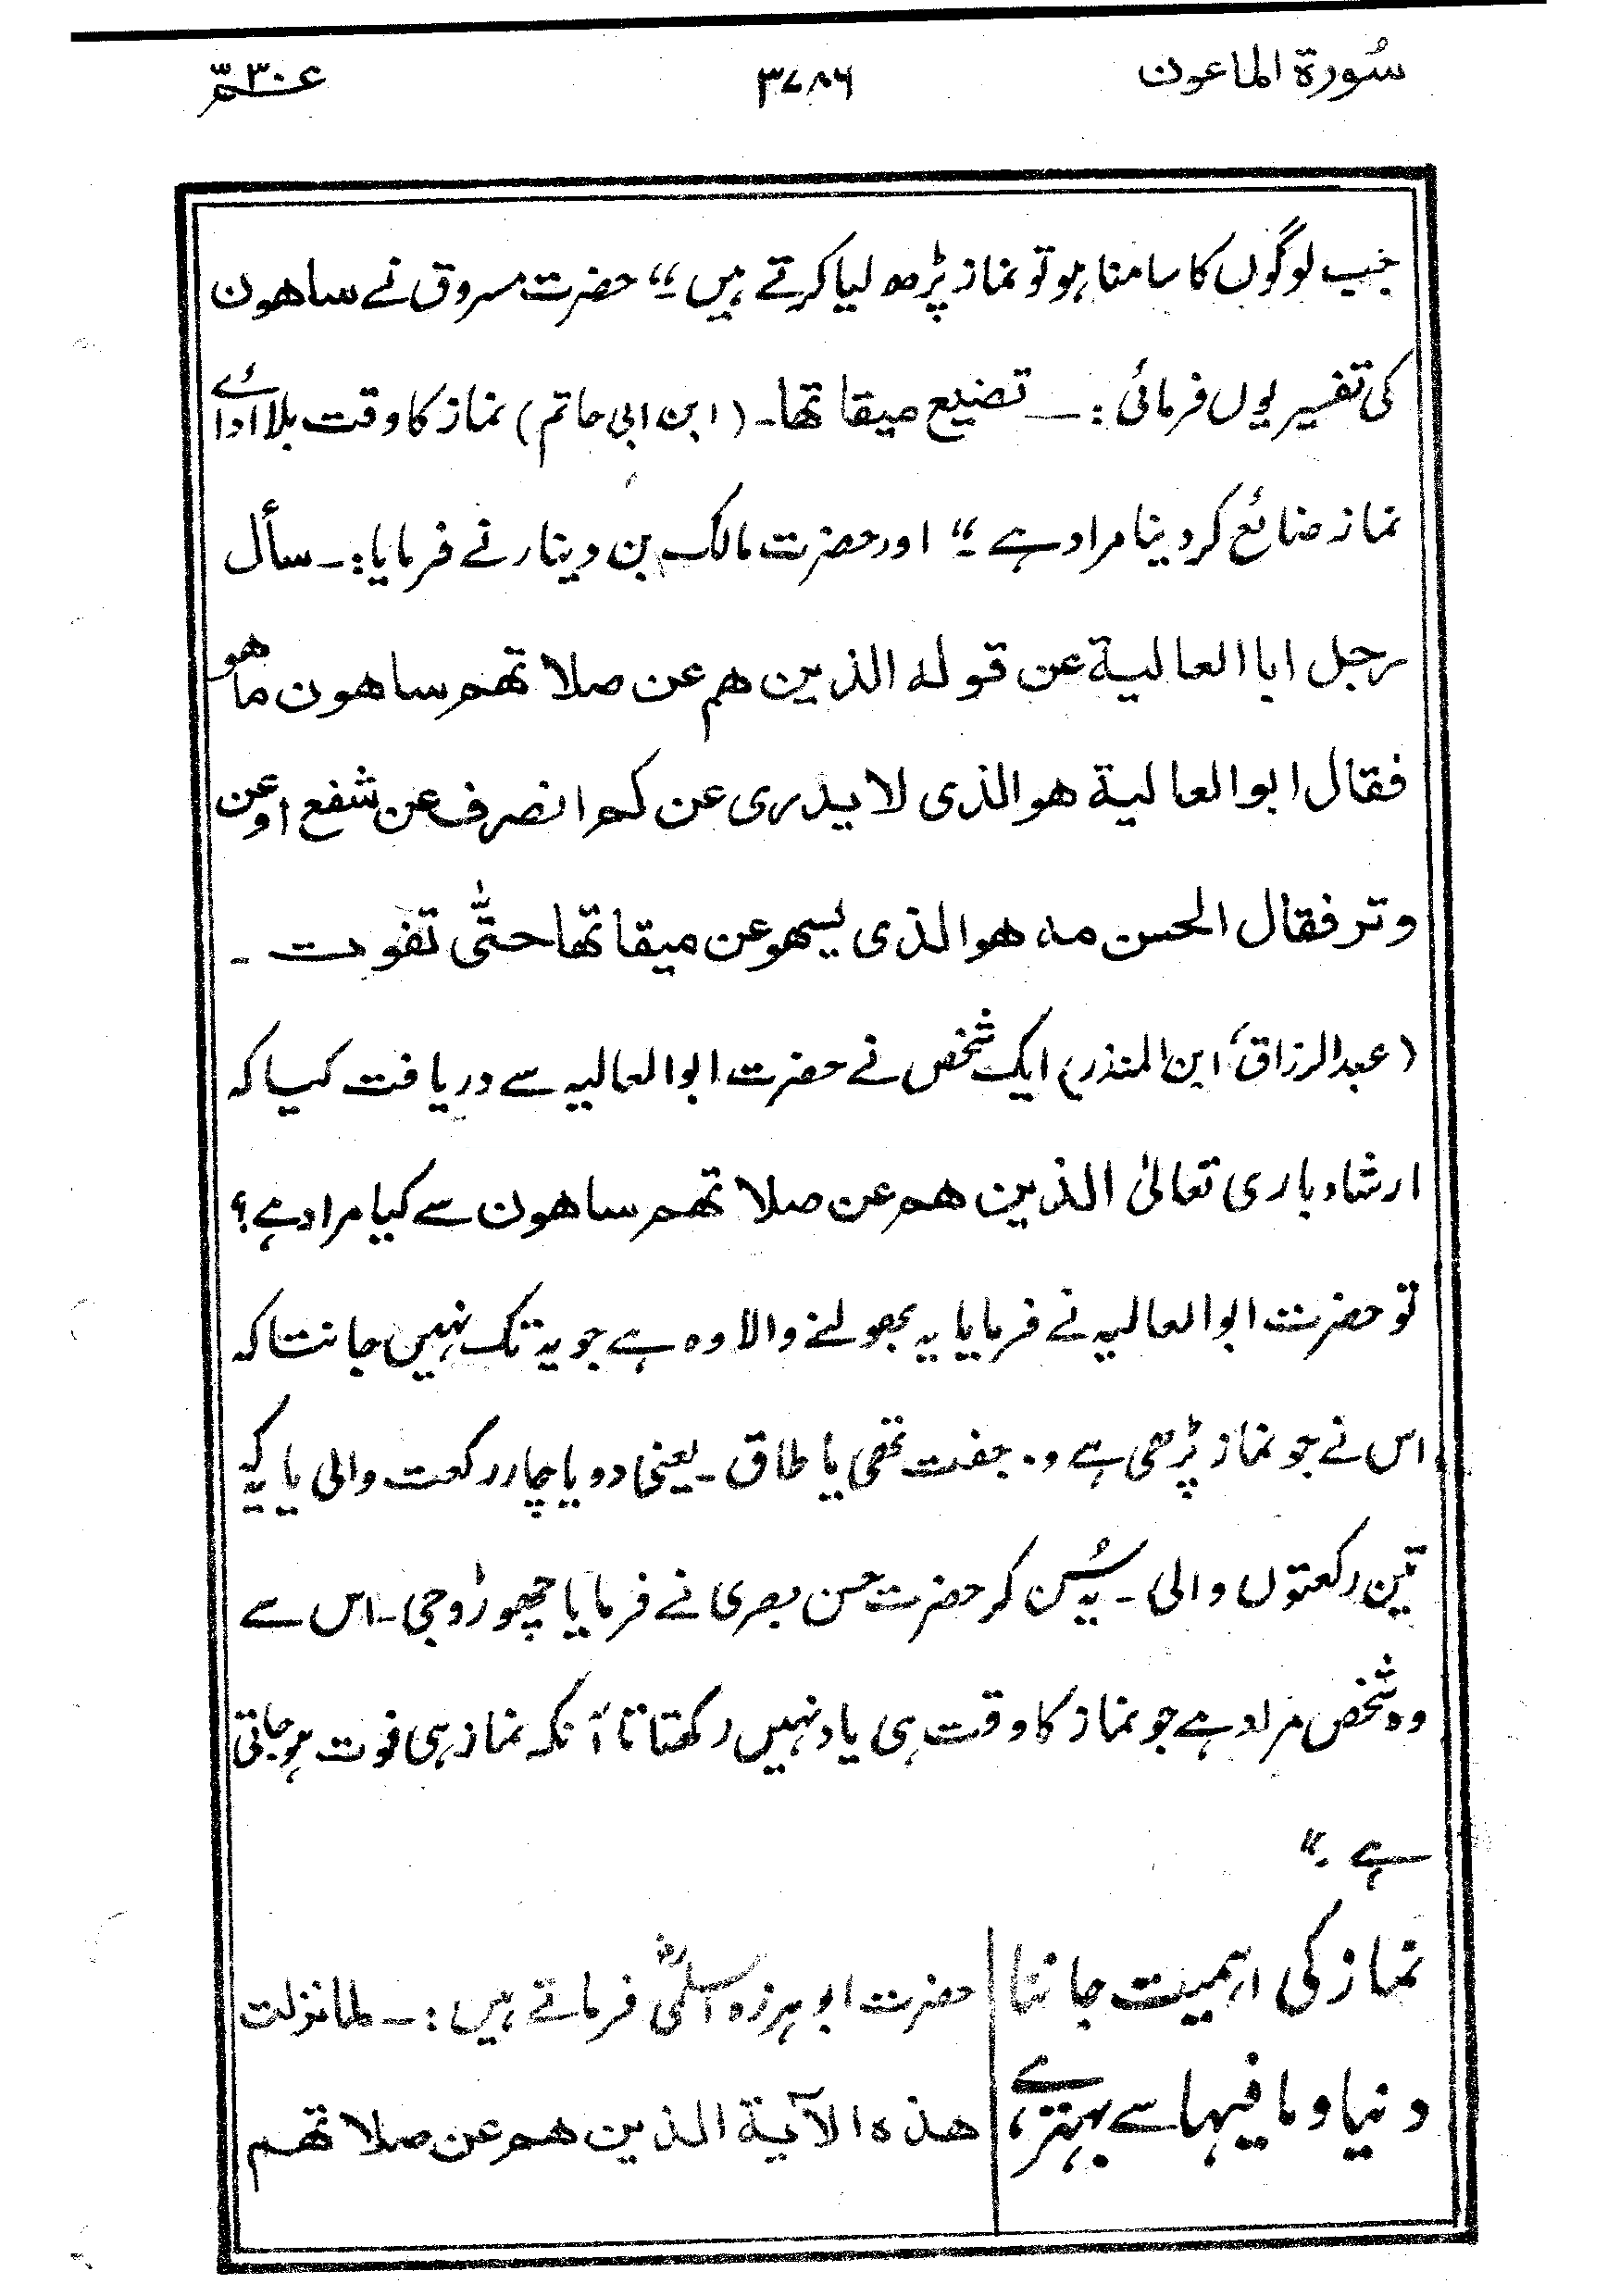 سُورة الماعون ۳۷۸۶ عـمّ۳۰
جب لوگوں کا سامنا ہو تو نماز پڑھ لیا کرتے ہیں۔“ حضرت مسروق نے ساھون
کی تفسیر یوں فرمائی :۔ تضیع میقاتھا۔ (ابن ابی حاتم) نماز کا وقت بلا ادائے
نماز ضائع کر دینا مراد ہے۔“ اور حضرت مالک بن دینار نے فرمایا:۔ سأل
رجل ابا العالیة عن قوله الذین ھم عن صلاتھم ساھون ما ھو
فقال ابو العالیة ھو الذی لا یدری عن کم انصرف عن شفع او عن
وتر فقال الحسن مه ھو الذی یسھو عن میقاتھا حتّٰی تفوت ۔
(عبدالرزاق، ابن المنذر) ایک شخص نے حضرت ابو العالیہ سے دریافت کیا کہ
ارشاد باری تعالیٰ الذین ھم عن صلاتھم ساھون سے کیا مراد ہے؟
تو حضرت ابو العالیہ نے فرمایا یہ بھولنے والا وہ ہے جو یہ تک نہیں جانتا کہ
اس نے جو نماز پڑھی ہے وہ جفت تھی یا طاق۔ یعنی دو یا چار رکعت والی یا یہ کہ
تین رکعتوں والی۔ یہ سُن کر حضرت حسن بصری نے فرمایا چھوڑو جی۔ اس سے
وہ شخص مراد ہے جو نماز کا وقت ہی یاد نہیں رکھتا تا آنکہ نماز ہی فوت ہو جاتی
ہے۔“
نماز کی اہمیت جاننا
دنیا و ما فیہا سے بہتر ہے
حضرت ابو برزہ اسلمیؓ فرماتے ہیں :۔ لما نزلت
ھذہ الآیة الذین ھم عن صلاتھم